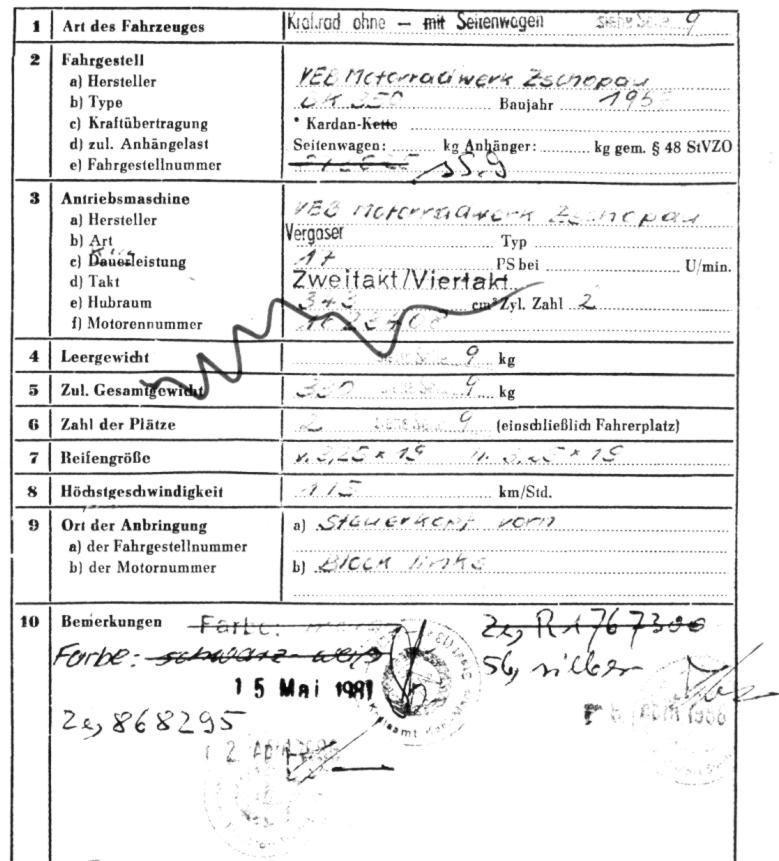 1 Art des Fahrzeuges Kraftrad ohne — mit Seitenwagen siehe Seite 9
2 Fahrgestell
a) Hersteller VEB Motorradwerk Zschopau
b) Type BK 350 Baujahr
c) Kraftübertragung * Kardan-Kette
d) zul. Anhängelast Seitenwagen: kg Anhänger: kg gem. § 48 StVZO
e) Fahrgestellnummer s S. 9
3 Antriebsmaschine
a) Hersteller VEB Motorradwerk Zschopau
b) Art Vergaser Typ
c) Dauerleistung 17 PS bei U/min.
d) Takt Zweitakt/Viertakt
e) Hubraum 343 cm³ Zyl. Zahl 2
f) Motorennummer
4 Leergewicht siehe Seite 9 kg
5 Zul. Gesamtgewicht 330 siehe Seite 9 kg
6 Zahl der Plätze 2 siehe Seite 9 (einschließlich Fahrerplatz)
7 Reifengröße v. 3,25 x 19 h. 3,25 x 19
8 Höchstgeschwindigkeit 115 km/Std.
9 Ort der Anbringung a) Steuerkopf vorn
a) der Fahrgestellnummer
b) der Motornummer b) Block links
10 Bemerkungen Farbe:
Farbe: schwarz-weiß
silber
15 Mai 1981
868295